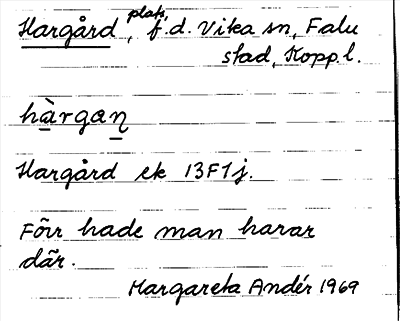 Hargård, plats, f.d. Vika sn, Falu
stad, Kopp. l.
hàrgaṉ
Hargård ek 13F1j.
Förr hade man harar
där.
Margareta Andér 1969